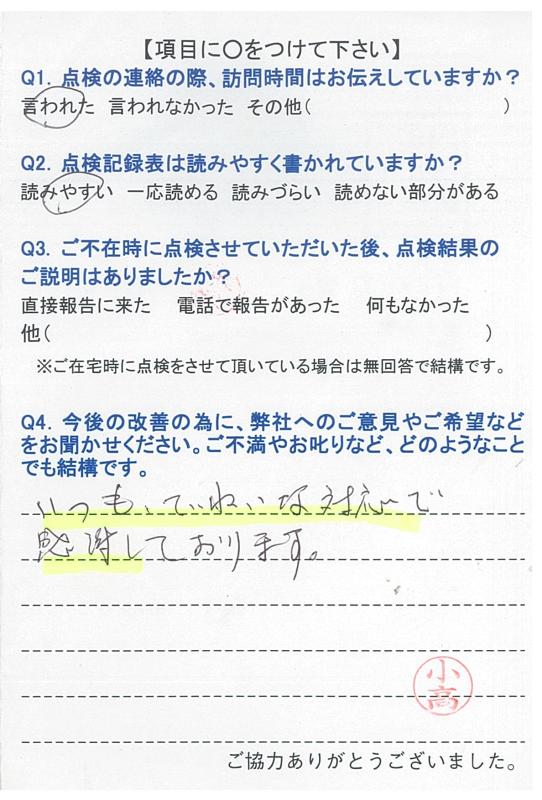 【項目に○をつけて下さい】
Q1. 点検の連絡の際、訪問時間はお伝えしていますか？
言われた 言われなかった その他( )
Q2. 点検記録表は読みやすく書かれていますか？
読みやすい 一応読める 読みづらい 読めない部分がある
Q3. ご不在時に点検させていただいた後、点検結果の
ご説明はありましたか？
直接報告に来た 電話で報告があった 何もなかった
他( )
※ご在宅時に点検をさせて頂いている場合は無回答で結構です。
Q4. 今後の改善の為に、弊社へのご意見やご希望など
をお聞かせください。ご不満やお叱りなど、どのようなこと
でも結構です。
いつも、ていねいな対応で
感謝しております。
小高
ご協力ありがとうございました。